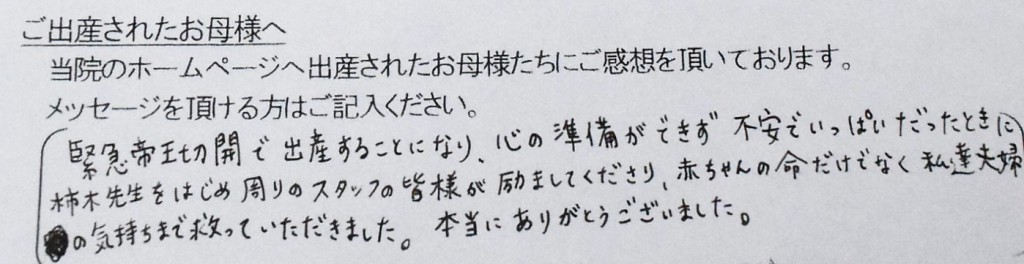 ご出産されたお母様へ
当院のホームページへ出産されたお母様たちにご感想を頂いております。
メッセージを頂ける方はご記入ください。
緊急帝王切開で出産することになり、心の準備ができず不安でいっぱいだったときに
柿木先生をはじめ周りのスタッフの皆様が励ましてくださり、赤ちゃんの命だけでなく私達夫婦
の気持ちまで救っていただきました。本当にありがとうございました。